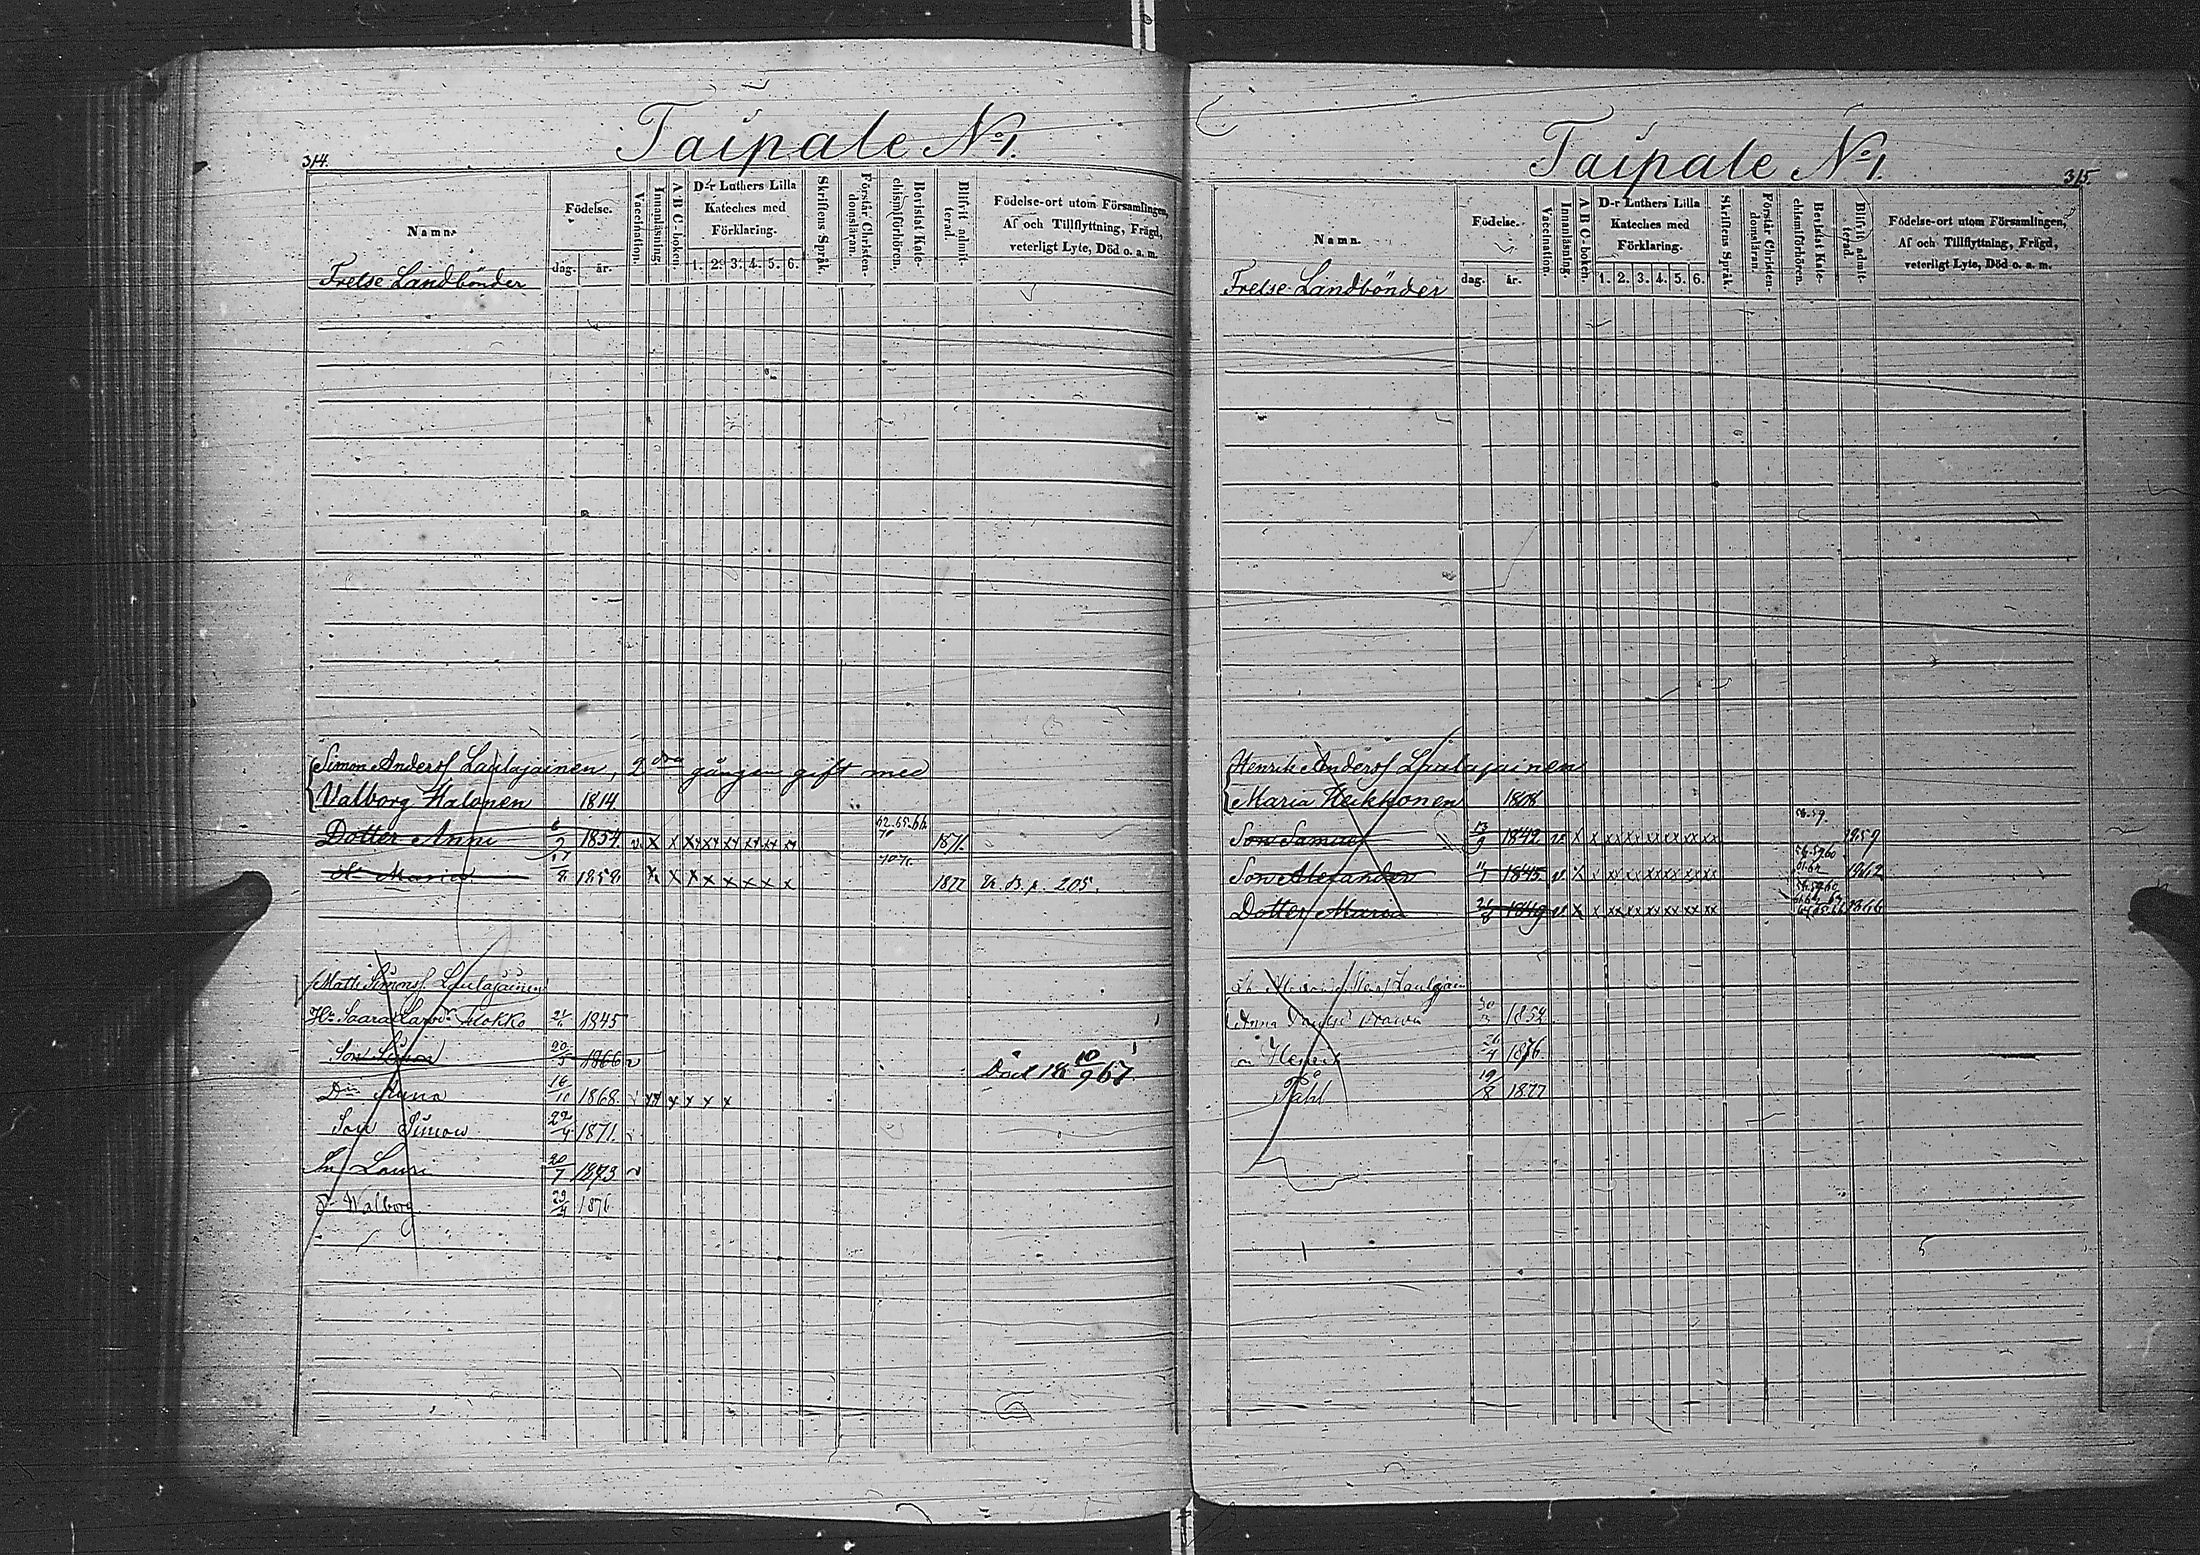 314.
Taipale No 1.
Namn.
Födelse.
dag.
år.
Vaccination.
Innanläsning.
A B C-boken.
D-r Luthers Lilla
Kateches med
Förklaring.
1. 2. 3. 4. 5. 6.
Skriftens Språk.
Förstår Christen-
domsläran.
Bevistat Kate-
chismiförhören.
Blifvit admit-
terad.
Födelse-ort utom Församlingen,
Af och Tillflyttning, Frägd,
veterligt Lyte, Död o. a. m.
Frelse Landbönder
Simon Andersf Laulajainen, 2dra gången gift med
Valborg Halonen 1814
Dotter Anni 6/2 1854. v x x x x x x x x 62.65.66 70 1871.
Maria 17/8 1858 x x x x x x x x 70 71. 1877 205.
Matts Simonsf. Laulajainen
Hu Saara Larsdr Flokko 24/ 1845
Son Simon 20/5 1866 v Död 18 10/9 67.
Dr Anna 16/10 1868. x x x x x x
Son Simon 22/4 1871.
Sn Lauri 20/7 1873 v
Dr Walborg 29/4 1876
315.
Taipale No 1.
Namn.
Födelse.
dag.
år.
Vaccination.
Innanläsning.
A B C-boken.
D-r Luthers Lilla
Kateches med
Förklaring.
1. 2. 3. 4. 5. 6.
Skriftens Språk.
Förstår Christen-
domsläran.
Bevistat Kate-
chismiförhören.
Blifvit admit-
terad.
Födelse-ort utom Församlingen,
Af och Tillflyttning, Frägd,
veterligt Lyte, Död o. a. m.
Frelse Landbönder
Henrik Andersf Laulajainen
Maria Heikkonen 1808
Son Samuel 13/9 1842 v x xx xx xx xx xx xx 58.59. 1859
Son Alexander 1845 v x xx xx xx xx xx xx 58.59.60 61.62 1862
Dotter Maria 1849 v x x xx xx xx xx xx xx 58.59.60 1866
Laulajain
Anna 30/3 1854
Henrik 26/4 1876.
Påhl 19/8 1877